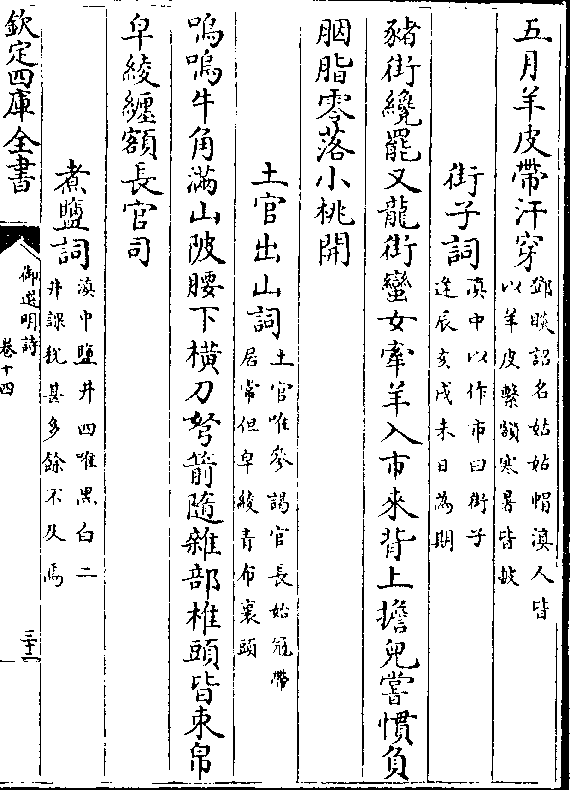 五月羊皮帶汗穿
鄧睒詔名姑姑帽滇人皆
以羊皮繫頸寒暑皆披
街子詞
滇中以作市曰街子
逢辰亥戌未日為期
豬街纔罷又龍街蠻女牽羊入市來背上擔兒嘗慣負
胭脂零落小桃開
土官出山詞
土官唯參謁官長始冠帶
居常但皁綾青布裹頭
嗚嗚牛角滿山陂腰下橫刀弩箭隨雜部椎頭皆束帛
皁綾纏額長官司
煮鹽詞
滇中鹽井四唯黑白二
井課稅甚多餘不及焉
欽定四庫全書
御選明詩
卷十四
三十二